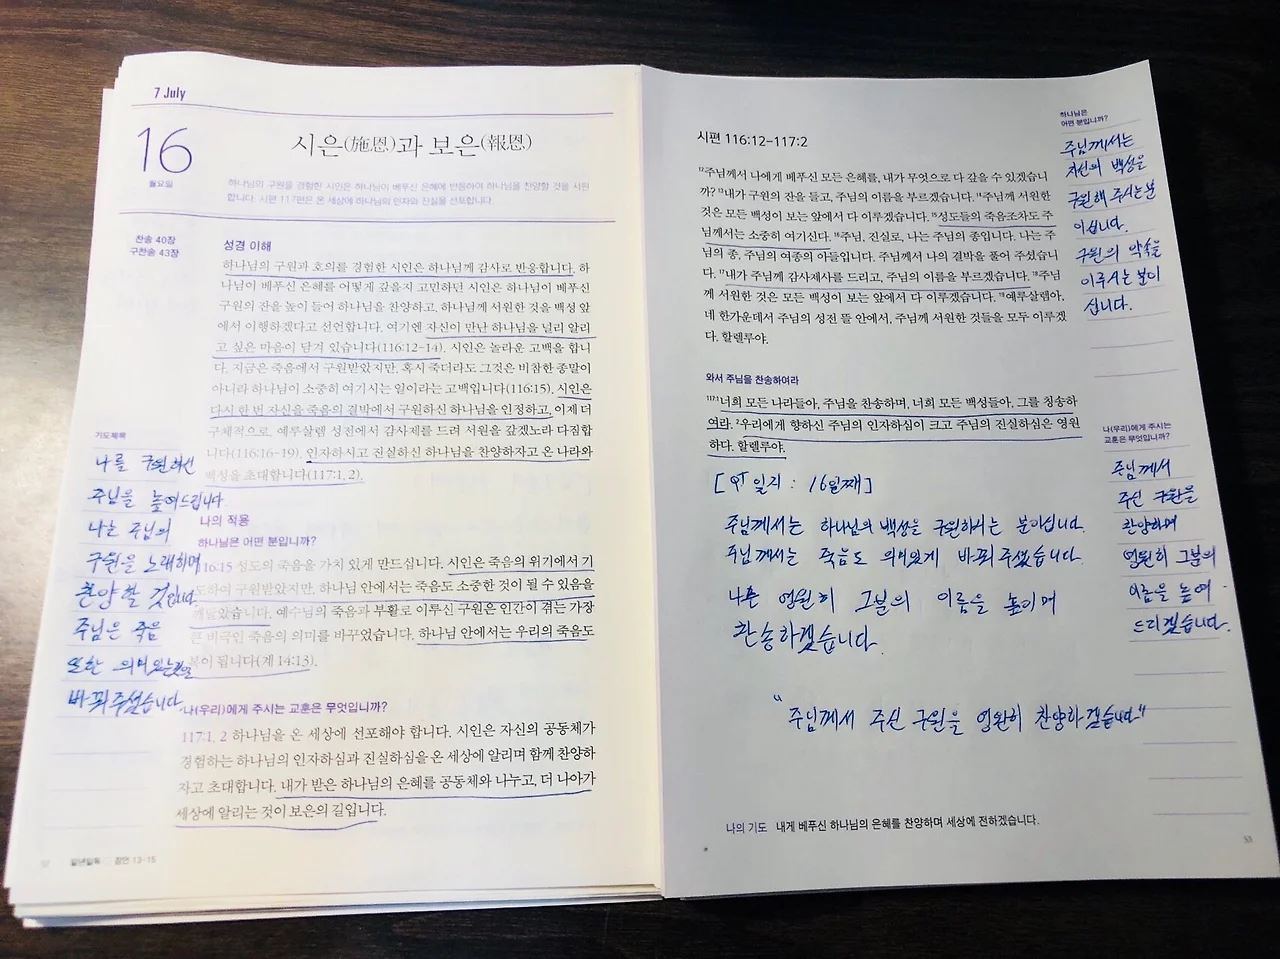 7 July
16
월요일
시은(施恩)과 보은(報恩)
하나님의 구원을 경험한 시인은 하나님이 베푸신 은혜에 반응하여 하나님을 찬양할 것을 서원
합니다. 시편 117편은 온 세상에 하나님의 인자와 진실을 선포합니다.
찬송 40장
구찬송 43장
성경 이해
하나님의 구원과 호의를 경험한 시인은 하나님께 감사로 반응합니다. 하
나님이 베푸신 은혜를 어떻게 갚을지 고민하던 시인은 하나님이 베푸신
구원의 잔을 높이 들어 하나님을 찬양하고, 하나님께 서원한 것을 백성 앞
에서 이행하겠다고 선언합니다. 여기엔 자신이 만난 하나님을 널리 알리
고 싶은 마음이 담겨 있습니다(116:12-14). 시인은 놀라운 고백을 합니
다. 지금은 죽음에서 구원받았지만, 혹시 죽더라도 그것은 비참한 종말이
아니라 하나님이 소중히 여기시는 일이라는 고백입니다(116:15). 시인은
다시 한 번 자신을 죽음의 결박에서 구원하신 하나님을 인정하고, 이제 더
구체적으로, 예루살렘 성전에서 감사제를 드려 서원을 갚겠노라 다짐합
니다(116:16-19). 인자하시고 진실하신 하나님을 찬양하자고 온 나라와
백성을 초대합니다(117:1, 2).
기도제목
나를 구원하신
주님을 높여드립니다.
나는 주님의
구원을 노래하며
찬양할 것입니다.
주님은 죽음
또한 의미있는것으로
바꿔주셨습니다.
나의 적용
하나님은 어떤 분입니까?
16:15 성도의 죽음을 가치 있게 만드십니다. 시인은 죽음의 위기에서 기
도하여 구원받았지만, 하나님 안에서는 죽음도 소중한 것이 될 수 있음을
깨달았습니다. 예수님의 죽음과 부활로 이루신 구원은 인간이 겪는 가장
큰 비극인 죽음의 의미를 바꾸었습니다. 하나님 안에서는 우리의 죽음도
복이 됩니다(계 14:13).
나(우리)에게 주시는 교훈은 무엇입니까?
117:1, 2 하나님을 온 세상에 선포해야 합니다. 시인은 자신의 공동체가
경험하는 하나님의 인자하심과 진실하심을 온 세상에 알리며 함께 찬양하
자고 초대합니다. 내가 받은 하나님의 은혜를 공동체와 나누고, 더 나아가
세상에 알리는 것이 보은의 길입니다.
52 일년일독 □ 잠언 13-15
시편 116:12-117:2
12주님께서 나에게 베푸신 모든 은혜를, 내가 무엇으로 다 갚을 수 있겠습니
까? 13내가 구원의 잔을 들고, 주님의 이름을 부르겠습니다. 14주님께 서원한
것은 모든 백성이 보는 앞에서 다 이루겠습니다. 15성도들의 죽음조차도 주
님께서는 소중히 여기신다. 16주님, 진실로, 나는 주님의 종입니다. 나는 주
님의 종, 주님의 여종의 아들입니다. 주님께서 나의 결박을 풀어 주셨습니
다. 17내가 주님께 감사제사를 드리고, 주님의 이름을 부르겠습니다. 18주님
께 서원한 것은 모든 백성이 보는 앞에서 다 이루겠습니다. 19예루살렘아,
네 한가운데서 주님의 성전 뜰 안에서, 주님께 서원한 것들을 모두 이루겠
다. 할렐루야.
와서 주님을 찬송하여라
117:1너희 모든 나라들아, 주님을 찬송하며, 너희 모든 백성들아, 그를 칭송하
여라. 2우리에게 향하신 주님의 인자하심이 크고 주님의 진실하심은 영원
하다. 할렐루야.
[QT 일지 : 16일째]
주님께서는 하나님의 백성을 구원하시는 분이십니다.
주님께서는 죽음도 의미있게 바꿔주셨습니다.
나는 영원히 그분의 이름을 높이며
찬송하겠습니다.
"주님께서 주신 구원을 영원히 찬양하겠습니다"
나의 기도 내게 베푸신 하나님의 은혜를 찬양하며 세상에 전하겠습니다.
하나님은
어떤 분입니까?
주님께서는
자신의 백성을
구원해 주시는분
이십니다.
구원의 약속을
이루시는 분이
십니다.
나(우리)에게 주시는
교훈은 무엇입니까?
주님께서
주신 구원을
찬양하며
영원히 그분의
이름을 높여
드리겠습니다.
53